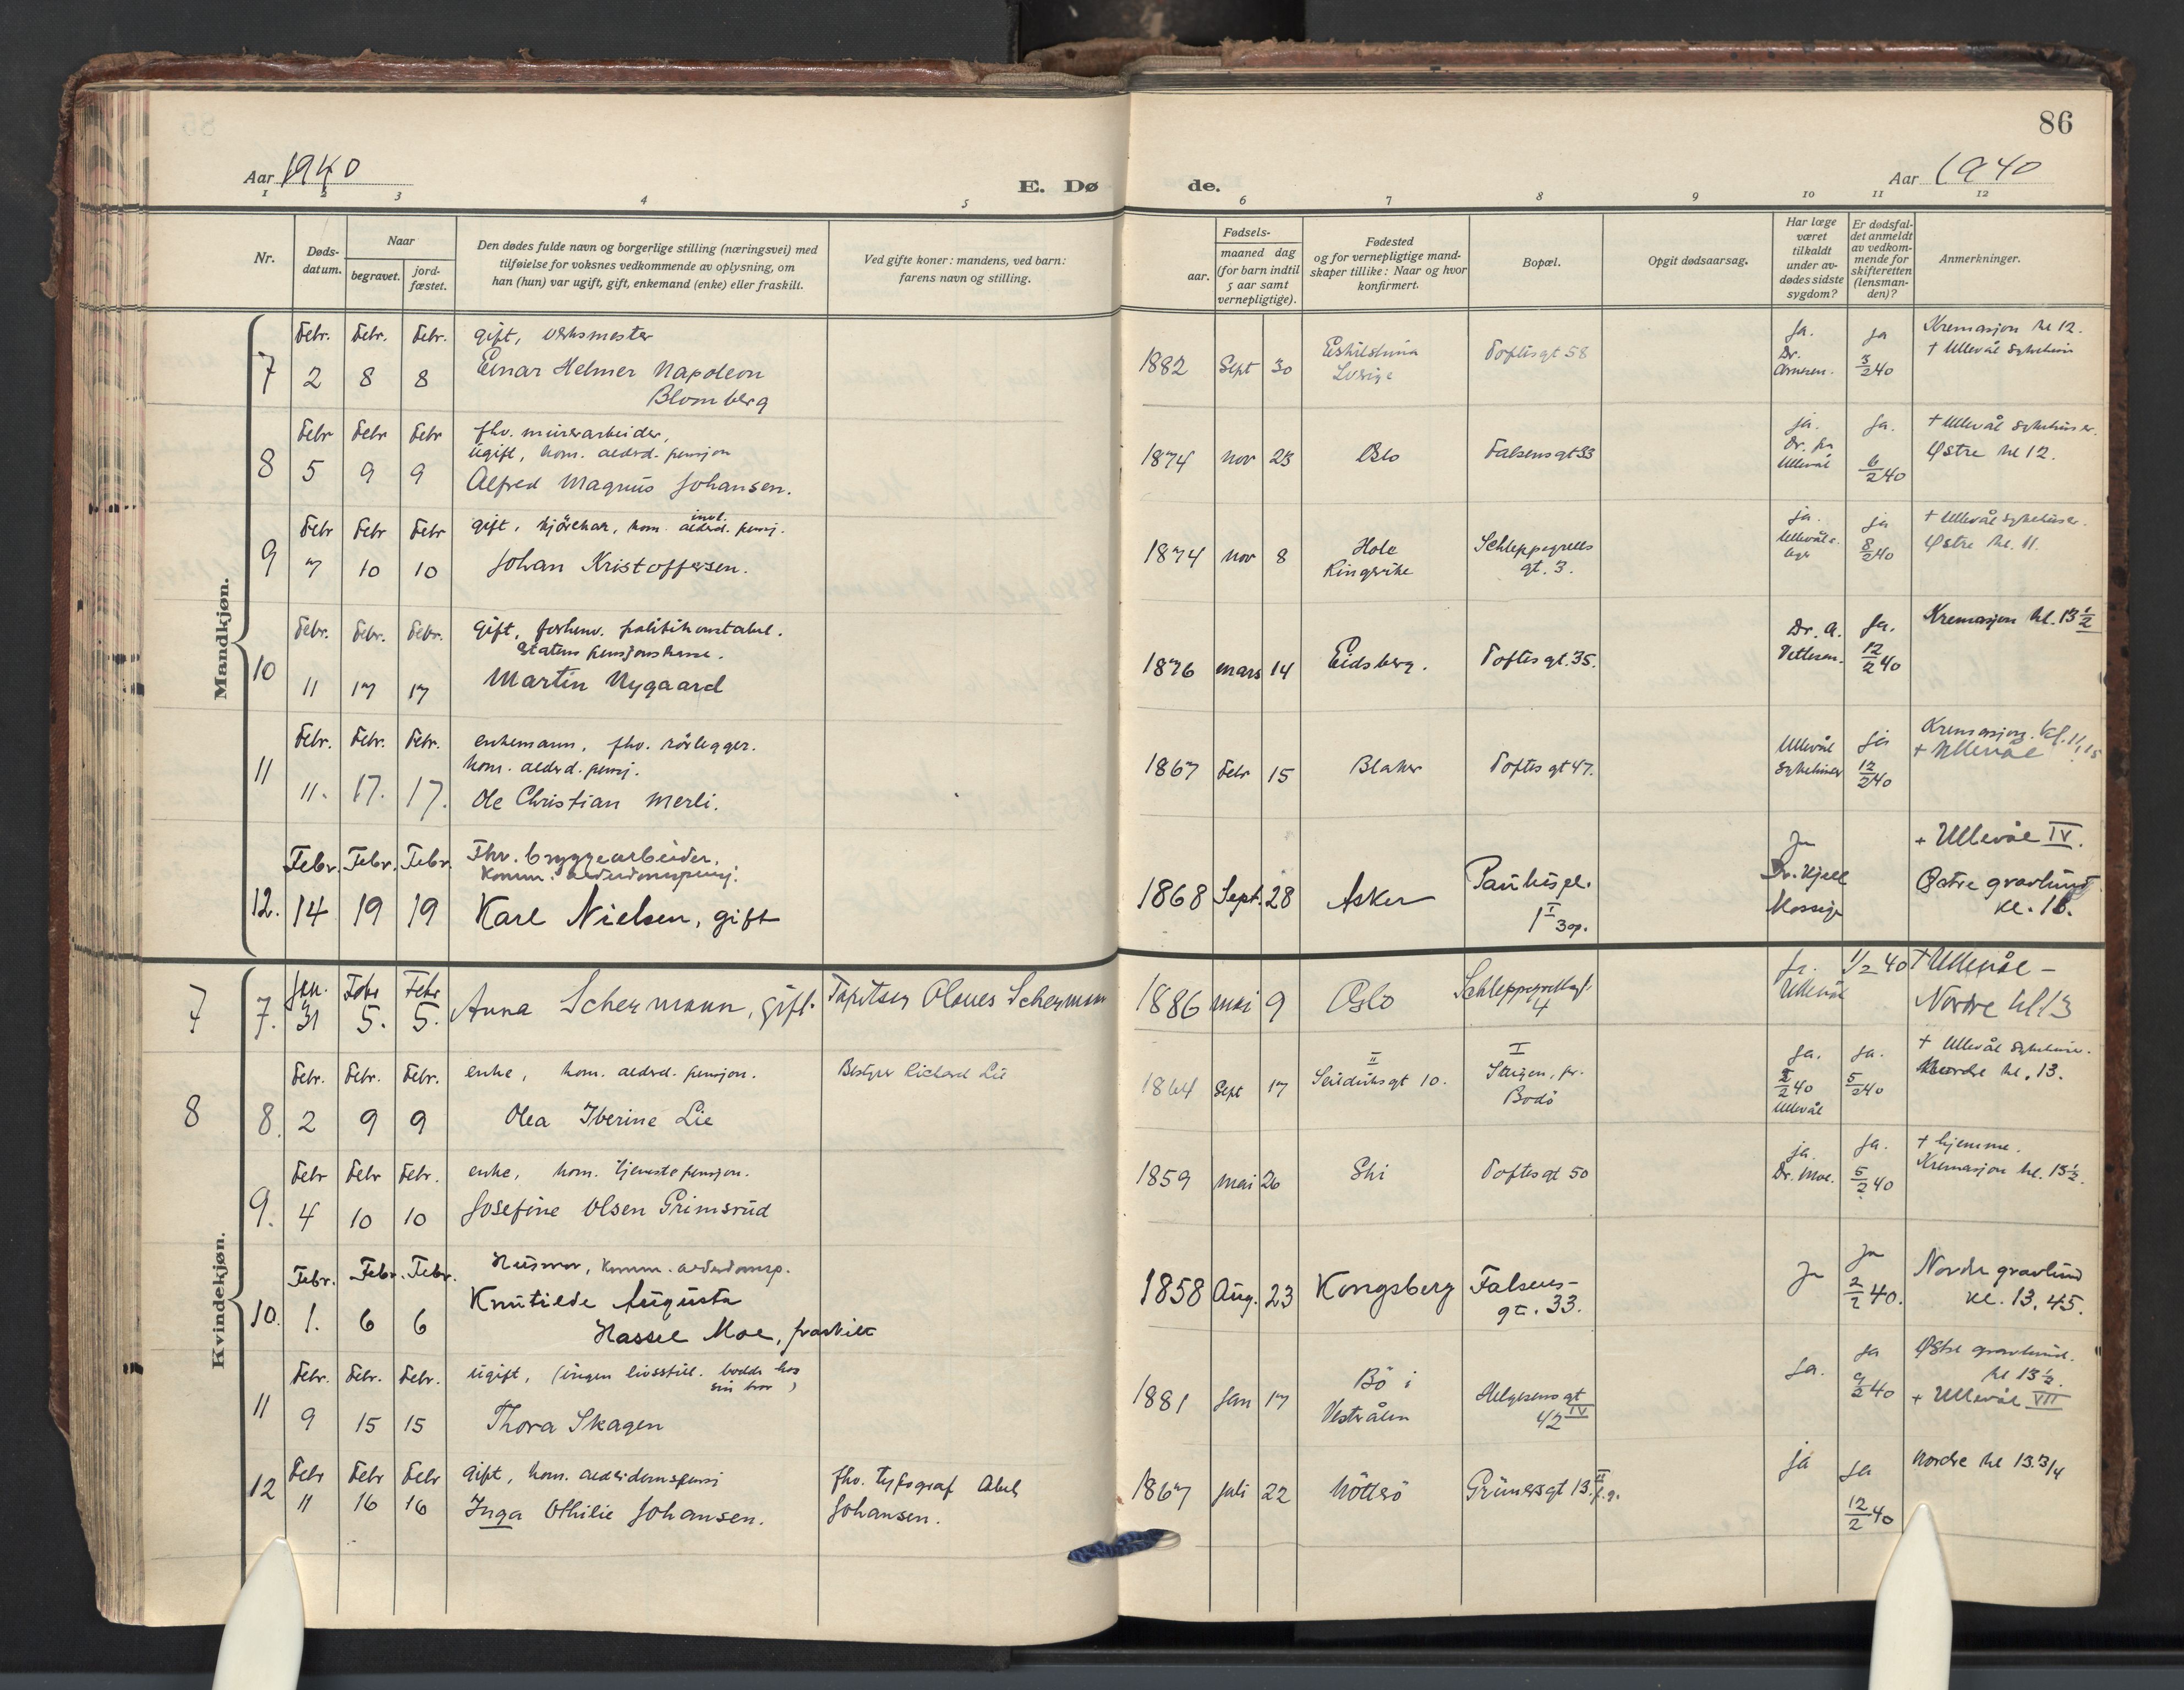 86
Aar 1940
E. Dø
de.
Aar 1940
1 2 3 4 5 6 7 8 9 10 11 12
Nr.
Døds-
datum.
Naar
begravet.
jord-
fæstet.
Den dødes fulde navn og borgerlige stilling (næringsvei) med
tilføielse for voksnes vedkommende av oplysning, om
han (hun) var ugift, gift, enkemand (enke) eller fraskilt.
Ved gifte koner: mandens, ved barn:
farens navn og stilling.
Fødsels-
aar.
maaned dag
(for barn indtil
5 aar samt
vernepligtige).
Fødested
og for vernepligtige mand-
skaper tillike: Naar og hvor
konfirmert.
Bopæl.
Opgit dødsaarsag.
Har læge
været
tilkaldt
under av-
dødes sidste
sygdom?
Er dødsfal-
det anmeldt
av vedkom-
mende for
skifteretten
(lensman-
den)?
Anmerkninger.
Mandkjøn.
Febr. Febr. Febr. gift, verksmester
7 2 8 8 Einar Helmer Napoleon
Blomberg
1882 Sept 30 Eskilstuna
Sverige
Toftesgt 58
Ja.
Dr.
Arnesen.
Ja
3/2 40
Kremasjon kl 12.
+ Ullevål Sykehus
Febr Febr Febr fhv. murerarbeider,
ugift, kom. alderd. pensjon
8 5 9 9 Alfred Magnus Johansen.
1874 Nov 23 Oslo Falsensgt 33
ja.
Dr. på
Ullevål
Ja.
6/2 40
+ Ullevål Sykehus
Østre kl 12.
Febr Febr Febr gift, kjørekar, kom. invl. alderd. pensj.
9 7 10 10 Johan Kristoffersen.
1874 Nov 8 Hole
Ringerike
Schleppegrells
gt. 3.
ja.
Ullevål
lege
ja
8/2 40
+ Ullevål Sykehus
Østre kl. 11.
Febr. Febr. Febr. gift, forhenv. politikonstabel.
Statens pensjonskasse.
10 11 17 17 Martin Nygaard
1876 mars 14 Eidsberg. Toftesgt. 35.
Dr. A.
Pettersen.
Ja.
12/2 40
Kremasjon kl. 13 1/2
Febr. Febr. Febr. enkemann, fhv. rørlegger.
kom. alderd. pensj.
11 11. 17. 17. Ole Christian Merli.
1867 Febr 15 Blaker Toftesgt 47.
Ullevål
Sykehus
ja
12/2 40
Kremasjon. kl. 11,15
+ Ullevål
Febr. Febr. Febr. Fhv. bryggearbeider,
Komm. alderdomspensj.
12. 14 19 19 Karl Nielsen, gift
1868 Sept. 28 Asker
Paulus pl.
1 I 3 op.
Ja
Dr. Kjell
Mossige
+ Ullevål IV.
Østre gravlund
Kvindekjøn.
Jan. Febr Febr
7 7. 31 5. 5. Anna Schermann, gift. Tapetser Olaves Schermann
1886 mai 9 Oslo Schleppegrellsgt.
4
Ja.
Ullevål
1/2 40
+ Ullevål -
Nordre kl 13
Febr. Febr. Febr. enke, kom. alderd. pensjon. Bestyrer Richard Lie
8 8. 2 9 9 Olea Iberine Lie
1864 Sept 17 II
Seilduksgt 10.
I
Steigen, pr.
Bodø
Ja.
2/2 40
Ullevål
Ja.
5/2 40
+ Ullevål Sykehus.
Nordre kl. 13.
Febr Febr Febr. enke, kom. tjenestepensjon.
9. 4 10 10 Josefine Olsen Grimsrud
1859 mai 26 Ski Toftesgt 50
ja.
Dr. Moe.
Ja.
5/2 40
+ hjemme.
Kremasjon kl. 13 1/2.
Febr. Febr. Febr. Husmor, Komm. alderdomsp.
10. 1. 6 6 Knutilde Augusta
Hassel Moe, fraskilt
1858 Aug. 23 Kongsberg Falsens-
gt. 33.
Ja
Ja
2/2 40.
Nordre gravlund
kl. 13,45.
Febr. Febr. Febr. ugift, (ingen livsstill. bodde hos
sin bror)
11 9 15 15 Thora Skagen
1881 Jan 17 Bö i
Vesterålen
Helgesensgt
42 IV
Ja.
Ja
9/2 40
Østre gravlund.
kl 13 1/2.
+ Ullevål VII
Febr Febr Febr gift, kom. alderdomspensj fhv. typograf Abel
12 11 16 16 Inga Othilie Johansen. Johansen.
1867 juli 22 Nötterö Grünersgt 13. II
ja
Ja
12/2 40
Nordre kl 13.3/4